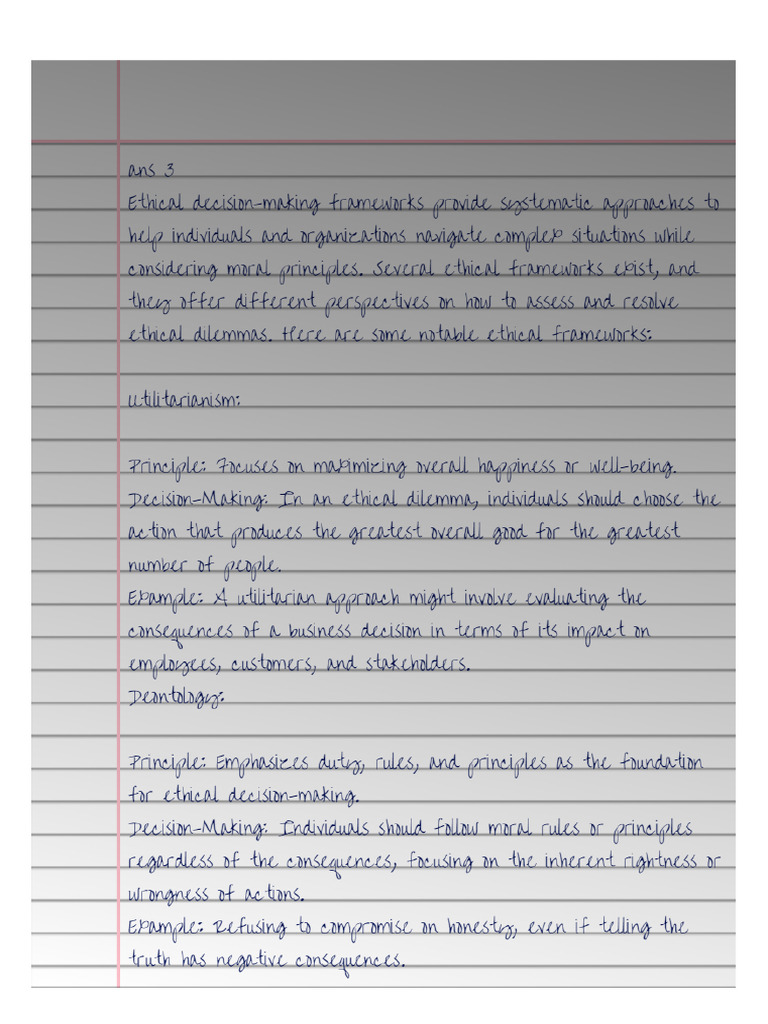 ans 3
Ethical decision-making frameworks provide systematic approaches to
help individuals and organizations navigate complex situations while
considering moral principles. Several ethical frameworks exist, and
they offer different perspectives on how to assess and resolve
ethical dilemmas. Here are some notable ethical frameworks:
Utilitarianism:
Principle: Focuses on maximizing overall happiness or well-being.
Decision-Making: In an ethical dilemma, individuals should choose the
action that produces the greatest overall good for the greatest
number of people.
Example: A utilitarian approach might involve evaluating the
consequences of a business decision in terms of its impact on
employees, customers, and stakeholders.
Deontology:
Principle: Emphasizes duty, rules, and principles as the foundation
for ethical decision-making.
Decision-Making: Individuals should follow moral rules or principles
regardless of the consequences, focusing on the inherent rightness or
wrongness of actions.
Example: Refusing to compromise on honesty, even if telling the
truth has negative consequences.